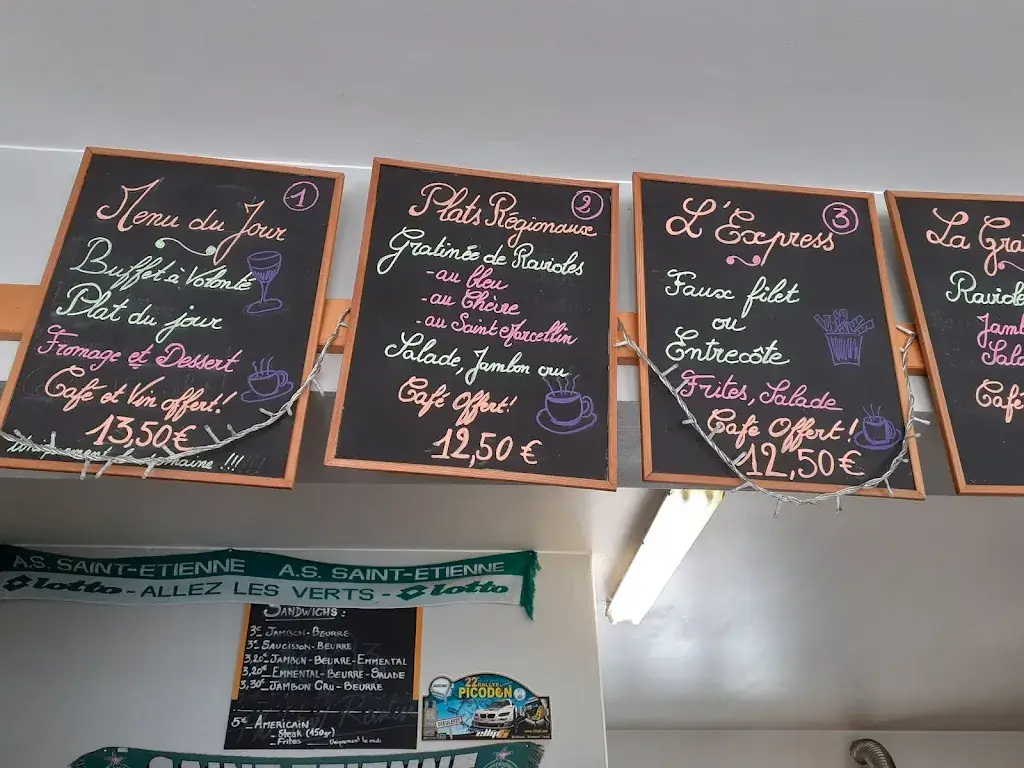 1
Menu du Jour
Buffet à Volonté
Plat du jour
Fromage et Dessert
Café et Vin offert!
13,50€
semaine. !!!
2
Plats Régionaux
Gratinée de Ravioles
- au bleu
- au Chèvre
- au Saint Marcellin
Salade, Jambon cru
Café Offert!
12,50 €
3
L'Express
Faux filet
ou
Entrecôte
Frites, Salade
Café Offert!
12,50 €
La Gra
Raviole
Jamb
Sala
Café
A.S. SAINT-ETIENNE A.S. SAINT-ETIENNE
lotto - ALLEZ LES VERTS - lotto
SANDWICHS :
3€ JAMBON-BEURRE
3€ SAUCISSON-BEURRE
3,20€ JAMBON-BEURRE-EMMENTAL
3,20€ EMMENTAL-BEURRE-SALADE
3,30€ JAMBON CRU-BEURRE
5€ AMERICAIN
- Steak (150gr)
- Frites Uniquement le midi
22e RALLYE
PICODON
SAINT-ETIENNE